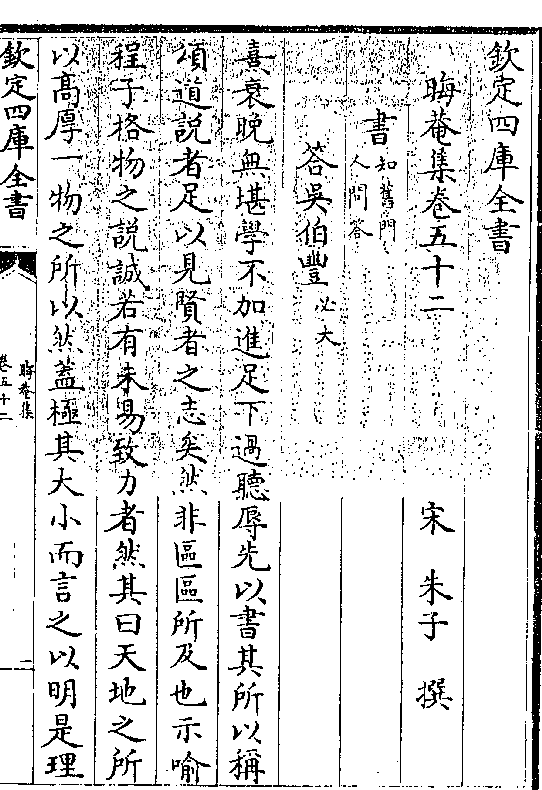 欽定四庫全書
晦菴集卷五十二
宋 朱子 撰
書知舊門人問答
答吳伯豐必大
熹衰晚無堪學不加進足下過聽辱先以書其所以稱
頌道説者足以見賢者之志矣然非區區所及也示喻
程子格物之説誠若有未易致力者然其曰天地之所
以髙厚一物之所以然蓋極其大小而言之以明是理
欽定四庫全書
晦菴集
卷五十二
一